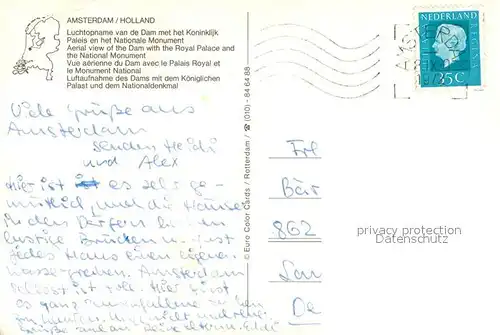 AMSTERDAM / HOLLAND
Luchtopname van de Dam met het Koninklijk
Paleis en het Nationale Monument
Aerial view of the Dam with the Royal Palace and
the National Monument
Vue aérienne du Dam avec le Palais Royal et
le Monument National
Luftaufnahme des Dams mit dem Königlichen
Palast und dem Nationaldenkmal
Viele Grüße aus
Amsterdam
senden Heidi
und Alex
Hier ist es sehr ge-
mütlich, und die Häuser
in den Dörfern haben
lustige Brücken u. fast
jedes Haus einen eigenen
Wassergraben. Amsterdam
selbst ist toll. Hier gibt
es ganz
© Euro Color Cards / Rotterdam / ☎ (010) - 84 64 88
NEDERLAND
35C
AMSTERD
Frl
Bär
862
Lau
De
privacy protection
Datenschutz